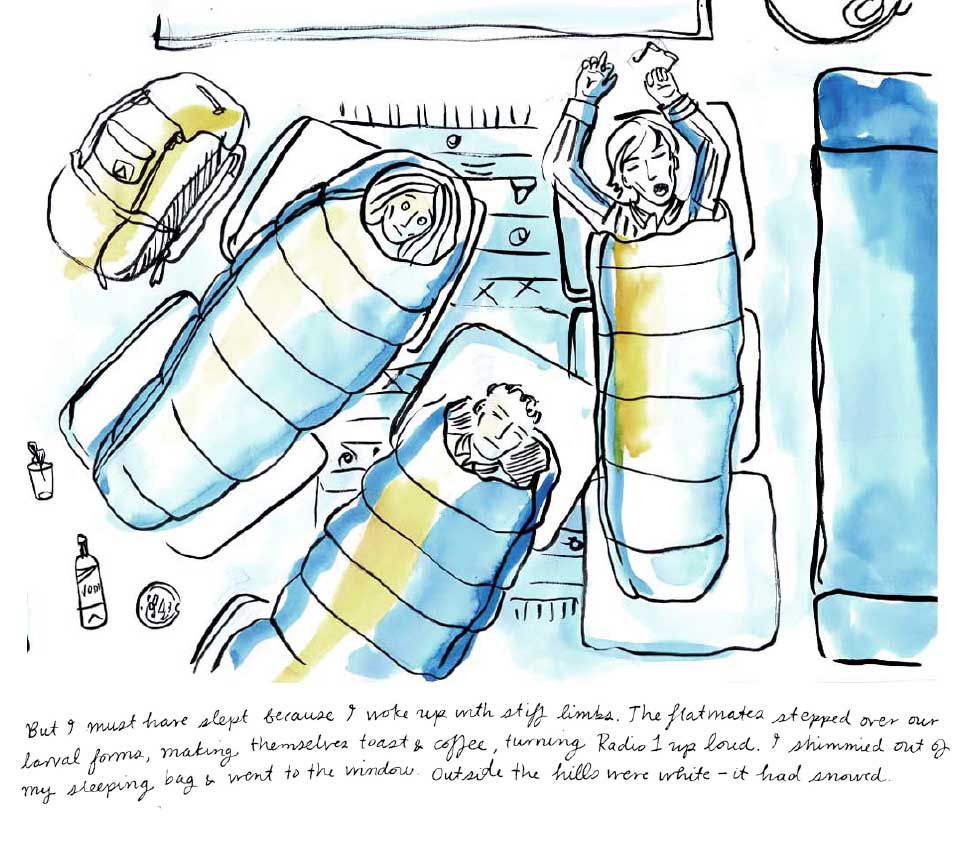 VODK
But I must have slept because I woke up with stiff limbs. The flatmates stepped over our
larval forms, making themselves toast & coffee, turning Radio 1 up loud. I shimmied out of
my sleeping bag & went to the window. Outside the hills were white - it had snowed.